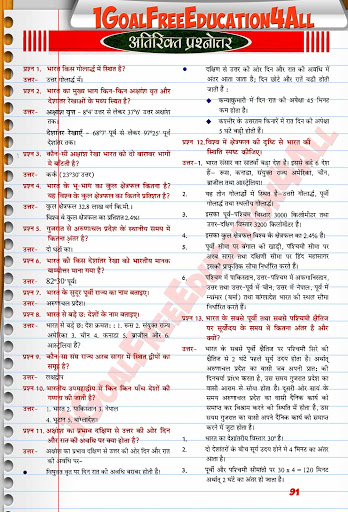 1GoalFreeEducation4All
अतिरिक्त प्रश्नोत्तर
प्रश्न 1. भारत किस गोलार्द्ध में स्थित है?
उत्तर- उत्तर गोलार्द्ध में।
प्रश्न 2. भारत का मुख्य भाग किन-किन अक्षांश वृत एवं
देशांतर रेखाओं के मध्य स्थित है?
उत्तर- अक्षांश वृत्त – 8°4' उत्तर से लेकर 37°6' उत्तर अक्षांश
तक।
देशांतर रेखाएँ – 68°7' पूर्व से लेकर 97°25' पूर्व
देशांतर तक।
प्रश्न 3. कौन-सी अक्षांश रेखा भारत को दो बराबर भागों
में बाँटती है?
उत्तर- कर्क (23°30' उत्तर)
प्रश्न 4. भारत के भू-भाग का कुल क्षेत्रफल कितना है?
यह विश्व के कुल क्षेत्रफल का कितने प्रतिशत है?
उत्तर- कुल क्षेत्रफल 32.8 लाख वर्ग कि.मी.।
विश्व के कुल क्षेत्रफल का प्रतिशत 2.4%।
प्रश्न 5. गुजरात से अरुणाचल प्रदेश के स्थानीय समय में
कितना अंतर है?
उत्तर- दो घंटे का।
प्रश्न 6. भारत की किस देशांतर रेखा को भारतीय मानक
याम्योत्तर माना गया है?
उत्तर- 82°30' पूर्व।
प्रश्न 7. भारत के सुदूर पूर्वी राज्य का नाम बताइए।
उत्तर- अरुणाचल प्रदेश।
प्रश्न 8. भारत से बड़े छः देशों के नाम बताइए।
उत्तर- भारत से बड़े छः देश क्रमशः : 1. रूस 2. संयुक्त राज्य
अमेरिका 3. चीन 4. कनाडा 5. ब्राजील और 6.
आस्ट्रेलिया हैं।
प्रश्न 9. कौन-सा संघ राज्य अरब सागर में स्थित द्वीपों का
समूह है?
उत्तर- लक्षद्वीप
प्रश्न 10. भारतीय उपमहाद्वीप में किन किन पाँच देशों की
गणना की जाती है?
उत्तर- 1. भारत 2. पाकिस्तान 3. नेपाल
4. भूटान 5. बांग्लादेश।
प्रश्न 11. अक्षांश का प्रभाव दक्षिण से उत्तर की ओर दिन
और रात की अवधि पर क्या होता है?
उत्तर- अक्षांश का प्रभाव दक्षिण से उत्तर की ओर दिन और रात
की अवधि पर-
● विषुवत वृत पर दिन रात की अवधि बराबर होती है।
● दक्षिण से उत्तर की ओर दिन और रात की अवधि में
अंतर आता जाता है; दिन छोटे और रातें बड़ी होती
जाती हैं :
❖ कन्याकुमारी में दिन रात की अपेक्षा 45 मिनट
कम होता है।
❖ कश्मीर के उत्तरतम किनारे में रात दिन की अपेक्षा
5 घंटे बड़ी होती है।
प्रश्न 12. विश्व में क्षेत्रफल की दृष्टि से भारत की
स्थिति स्पष्ट कीजिए।
उत्तर- 1. भारत संसार का सातवाँ बड़ा देश है। इससे बड़े 6 देश
हैं– रूस, कनाडा, संयुक्त राज्य अमेरिका, चीन,
ब्राजील तथा आस्ट्रेलिया।
2. यह तीन गोलार्द्धों में स्थित है–उत्तरी गोलार्द्ध, पूर्वी
गोलार्द्ध तथा स्थलीय गोलार्द्ध।
3. इसका पूर्व-पश्चिम विस्तार 3000 किलोमीटर तथा
उत्तर-दक्षिण विस्तार 3200 किलोमीटर है।
4. इसका कुल क्षेत्रफल विश्व के क्षेत्रफल का 2.4% है।
5. पूर्वी सीमा पर बंगाल की खाड़ी, पश्चिमी सीमा पर
अरब सागर तथा दक्षिणी सीमा पर हिंद महासागर
इसको प्राकृतिक सीमा निर्धारित करते हैं।
6. पश्चिम में पाकिस्तान, उत्तर-पश्चिम में अफगानिस्तान,
उत्तर तथा उत्तर-पूर्व में चीन, उत्तर में नेपाल, पूर्व में
म्यांमार (बर्मा) तथा बांगलादेश भारत को स्थल सीमा
निर्धारित करते हैं।
प्रश्न 13. भारत के सबसे पूर्वी तथा सबसे पश्चिमी क्षितिज
पर सूर्योदय के समय में कितना अंतर है और
क्यों?
उत्तर- भारत के सबसे पूर्वी क्षितिज पर पश्चिमी सिरे की
क्षितिज से 2 घंटे पहले सूर्य उदय होता है। अर्थात्
अरुणाचल प्रदेश का वासी जब अपनी प्रातः की
दिनचर्या प्रारंभ करता है, उस समय गुजरात प्रदेश का
वासी आराम से सोया होता है। दूसरी ओर सायं के
समय अरुणाचल प्रदेश का वासी दैनिक कार्य को
समाप्त कर विश्राम करने की स्थिति में होता है, उस
समय गुजरात का वासी अपने दैनिक कार्य को समाप्त
करने में जुटा होता है।
1. भारत का देशांतरीय विस्तार 30° है।
2. दो देशांतरों के बीच सूर्य उदय होने में 4 मिनट का अंतर
आता है।
3. पूर्वी और पश्चिमी सीमांतों पर 30 x 4 = 120 मिनट
अर्थात् 2 घंटे का अंतर हो जाता है।
91
1GOALFREEEDUCATION4ALL